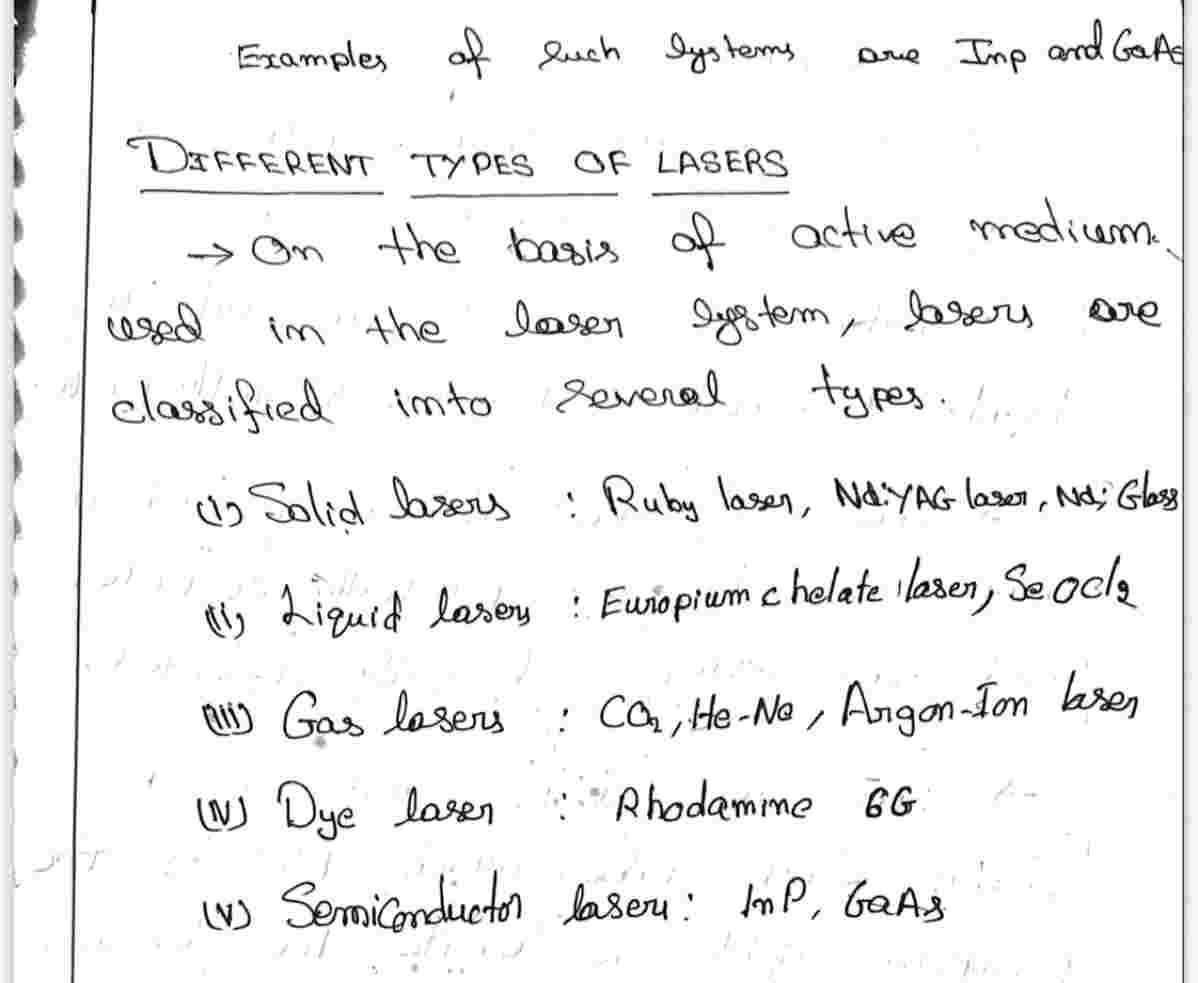 Examples of such systems are Inp and GaAs
DIFFERENT TYPES OF LASERS
→ On the basis of active medium
used in the laser system, lasers are
classified into several types.
(i) Solid lasers : Ruby laser, Nd:YAG laser, Nd; Glass
(ii) Liquid lasers : Europium chelate laser, SeOCl2
(iii) Gas lasers : CO2, He-Ne, Argon-Ion laser
(iv) Dye laser : Rhodamine 6G
(v) Semiconductor laser : InP, GaAs